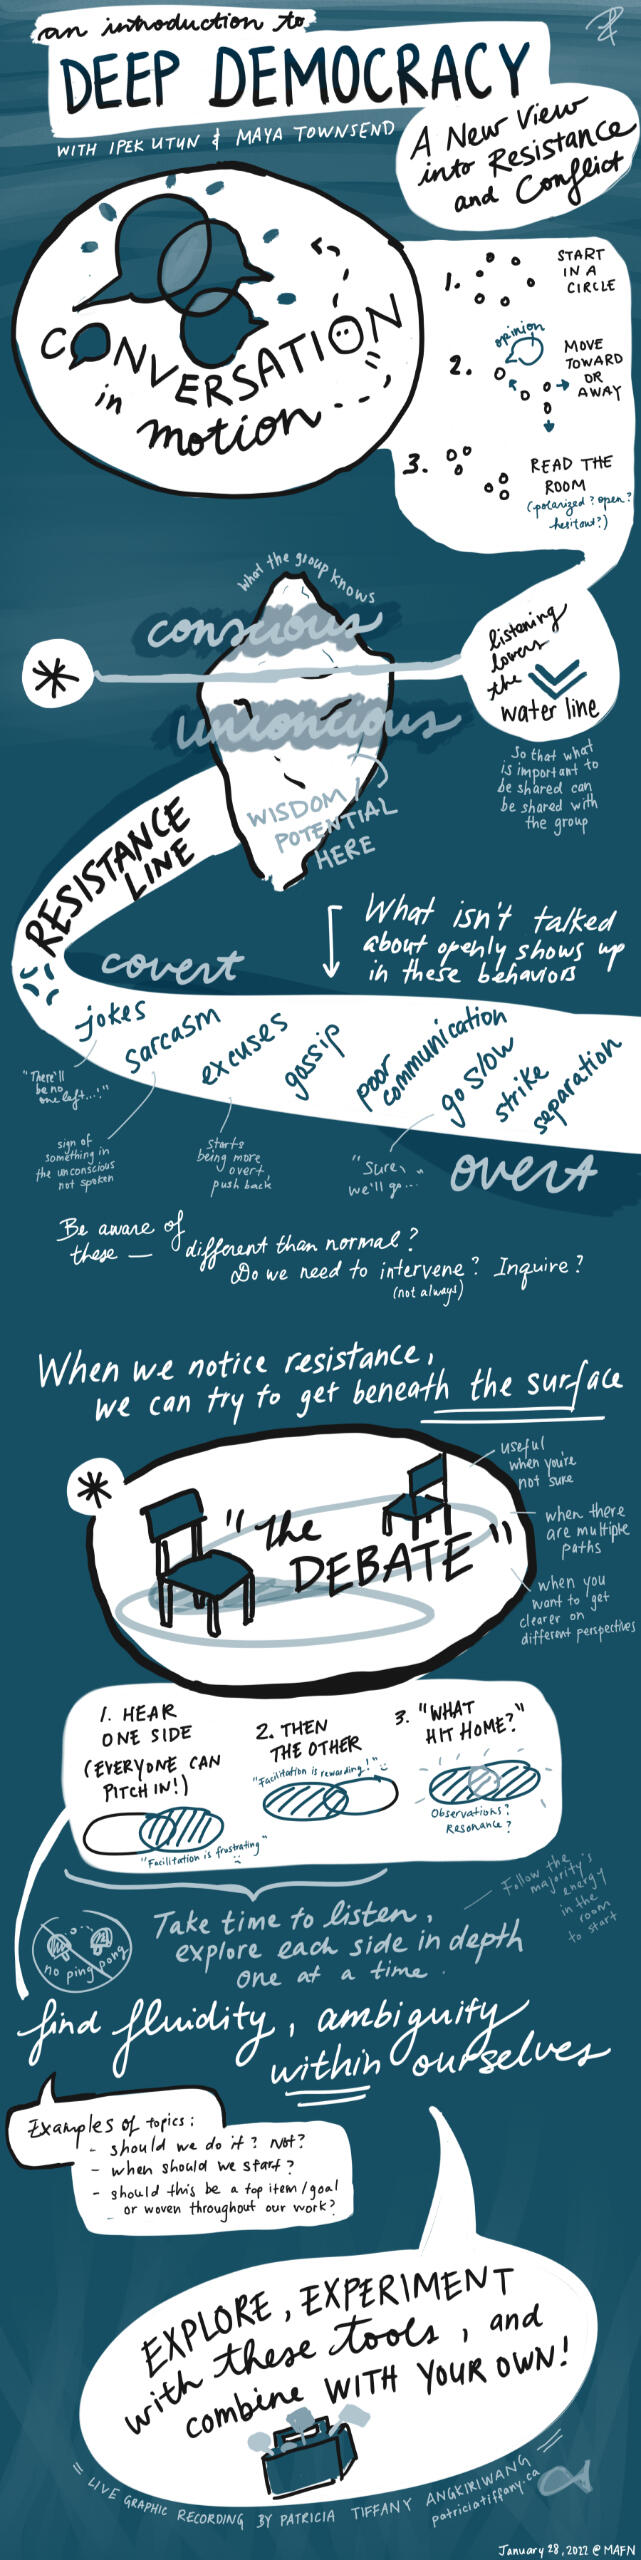 an introduction to
DEEP DEMOCRACY
WITH IPEK UTUN & MAYA TOWNSEND
A New View
into Resistance
and Conflict
CONVERSATION
in
motion
1.
START
IN A
CIRCLE
2.
opinion
MOVE
TOWARD
OR
AWAY
3.
READ THE
ROOM
(polarized? open?
hesitant?)
what the group knows
conscious
unconcious
WISDOM
POTENTIAL
HERE
listening
lowers
the
water line
So that what
is important to
be shared can
be shared with
the group
RESISTANCE
LINE
What isn't talked
about openly shows up
in these behaviors
covert
jokes
sarcasm
excuses
gossip
poor
communication
go slow
strike
separation
"There'll
be no
one left...!"
sign of
something in
the unconscious
not spoken
starts
being more
overt,
push back
"Sure,
we'll go..."
overt
Be aware of
these — different than normal?
Do we need to intervene? Inquire?
(not always)
When we notice resistance,
we can try to get beneath the surface
"the
DEBATE"
useful
when you're
not sure
when there
are multiple
paths
when you
want to get
clearer on
different perspectives
1. HEAR
ONE SIDE
(EVERYONE CAN
PITCH IN!)
"Facilitation is frustrating"
2. THEN
THE OTHER
"Facilitation is rewarding!"
3. "WHAT
HIT HOME?"
Observations?
Resonance?
Follow the
majority's
energy
in the
room
to start
no ping pong
Take time to listen,
explore each side in depth
one at a time.
find fluidity, ambiguity
within ourselves
Examples of topics:
- should we do it? Not?
- when should we start?
- should this be a top item/goal
or woven throughout our work?
EXPLORE, EXPERIMENT
with these tools, and
combine WITH YOUR OWN!
= LIVE GRAPHIC RECORDING BY PATRICIA TIFFANY ANGKIRIWANG =
patriciatiffany.ca
January 28, 2022 @ MAFN